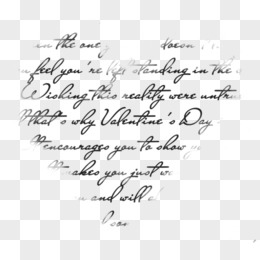 in the one doesn't
feel you're like standing in the
Wishing this reality were untru
that's why Valentine's Day
encourages you to show y
makes you just w
and will
soon